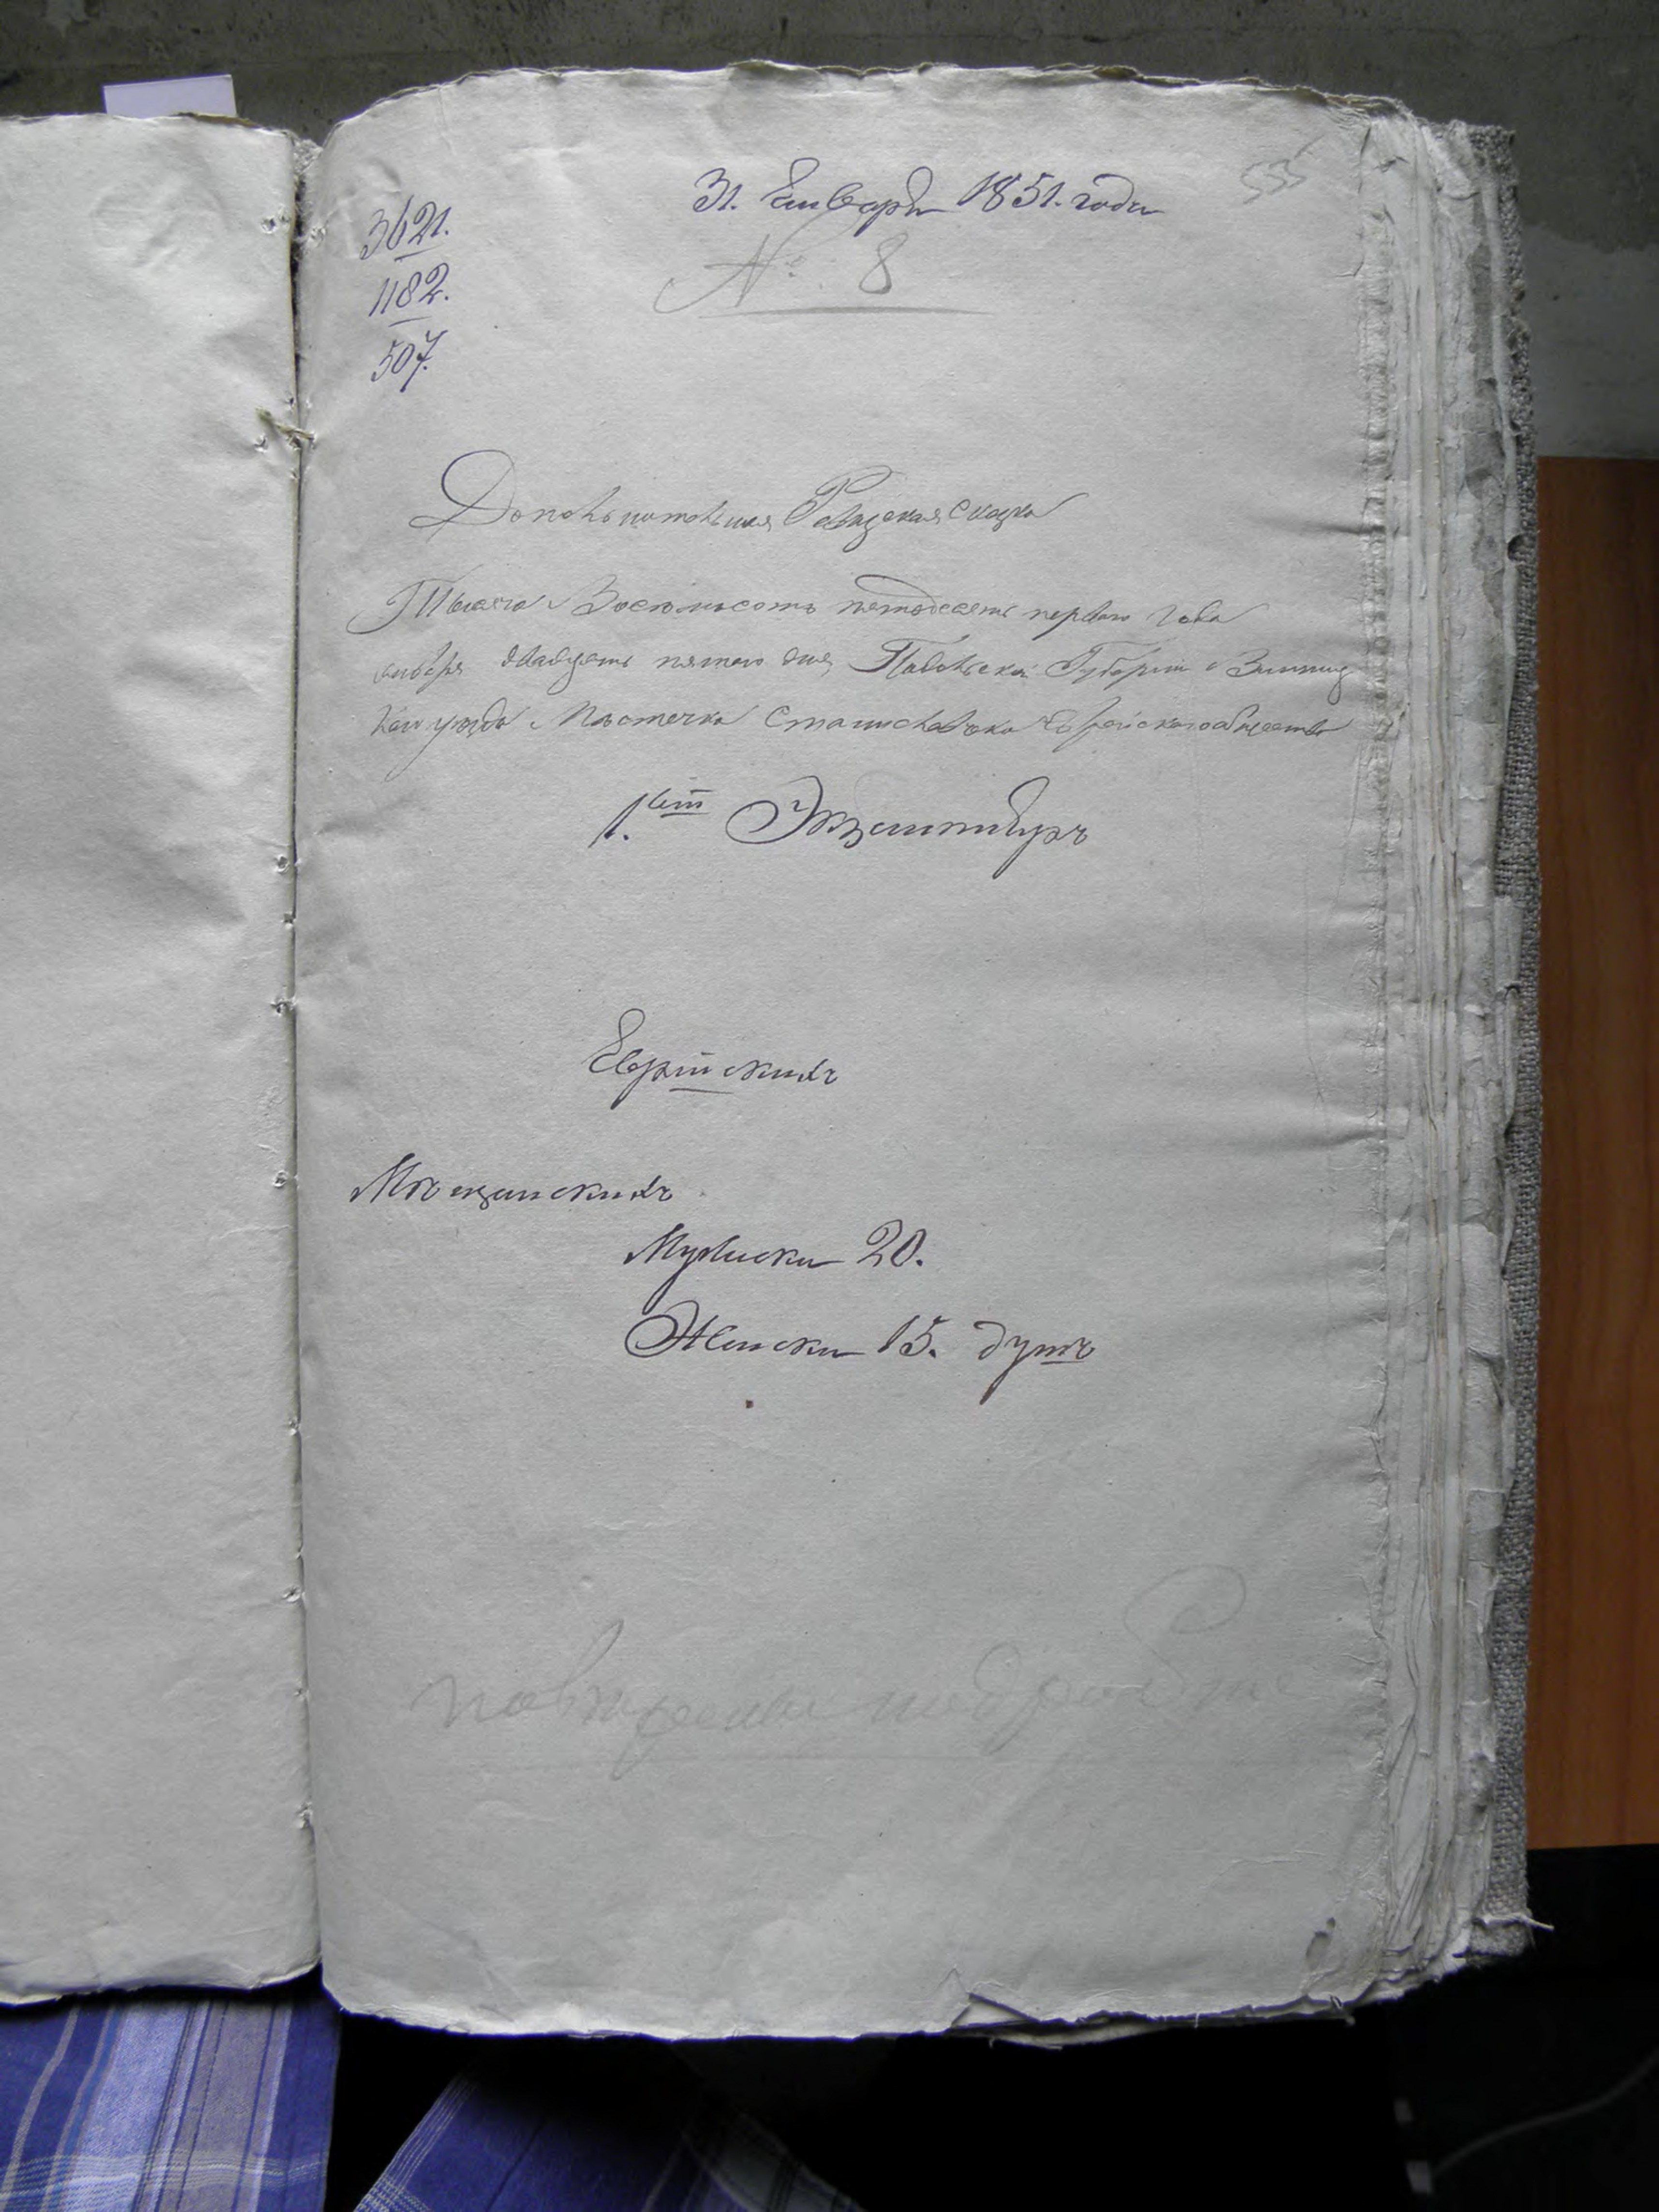 555
31. Генваря 1851. года
3621.
1182.
507.
№ 8
Дополнительная Ревизская Сказка
Тысяча Восемьсотъ пятьдесятъ перваго Года
января двадцать пятаго дня Подольской Губерніи Винниц
кого уезда Местечка Станиславчика Еврейского общества
1.ый Экземпляръ
Еврейскихъ
Мещанскихъ
Мужески 20.
Женски 15. душъ